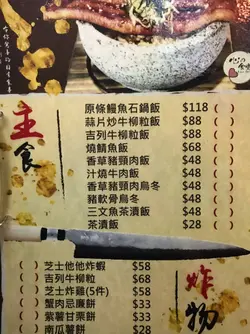 主食
原條鰻魚石鍋飯 $118 ( )
蒜片炒牛柳粒飯 $88 ( )
吉列牛柳粒飯 $88 ( )
燒鯖魚飯 $68 ( )
香草豬頸肉飯 $48 ( )
汁燒牛肉飯 $48 ( )
香草豬頸肉烏冬 $48 ( )
豬軟骨烏冬 $48 ( )
三文魚茶漬飯 $48 ( )
茶漬飯 $28 ( )
炸物
( ) 芝士他他炸蝦 $58
( ) 吉列牛柳粒 $68
( ) 芝士炸雞(5件) $58
( ) 蟹肉忌廉餅 $33
( ) 紫薯甘栗餅 $33
( ) 南瓜薯餅 $28